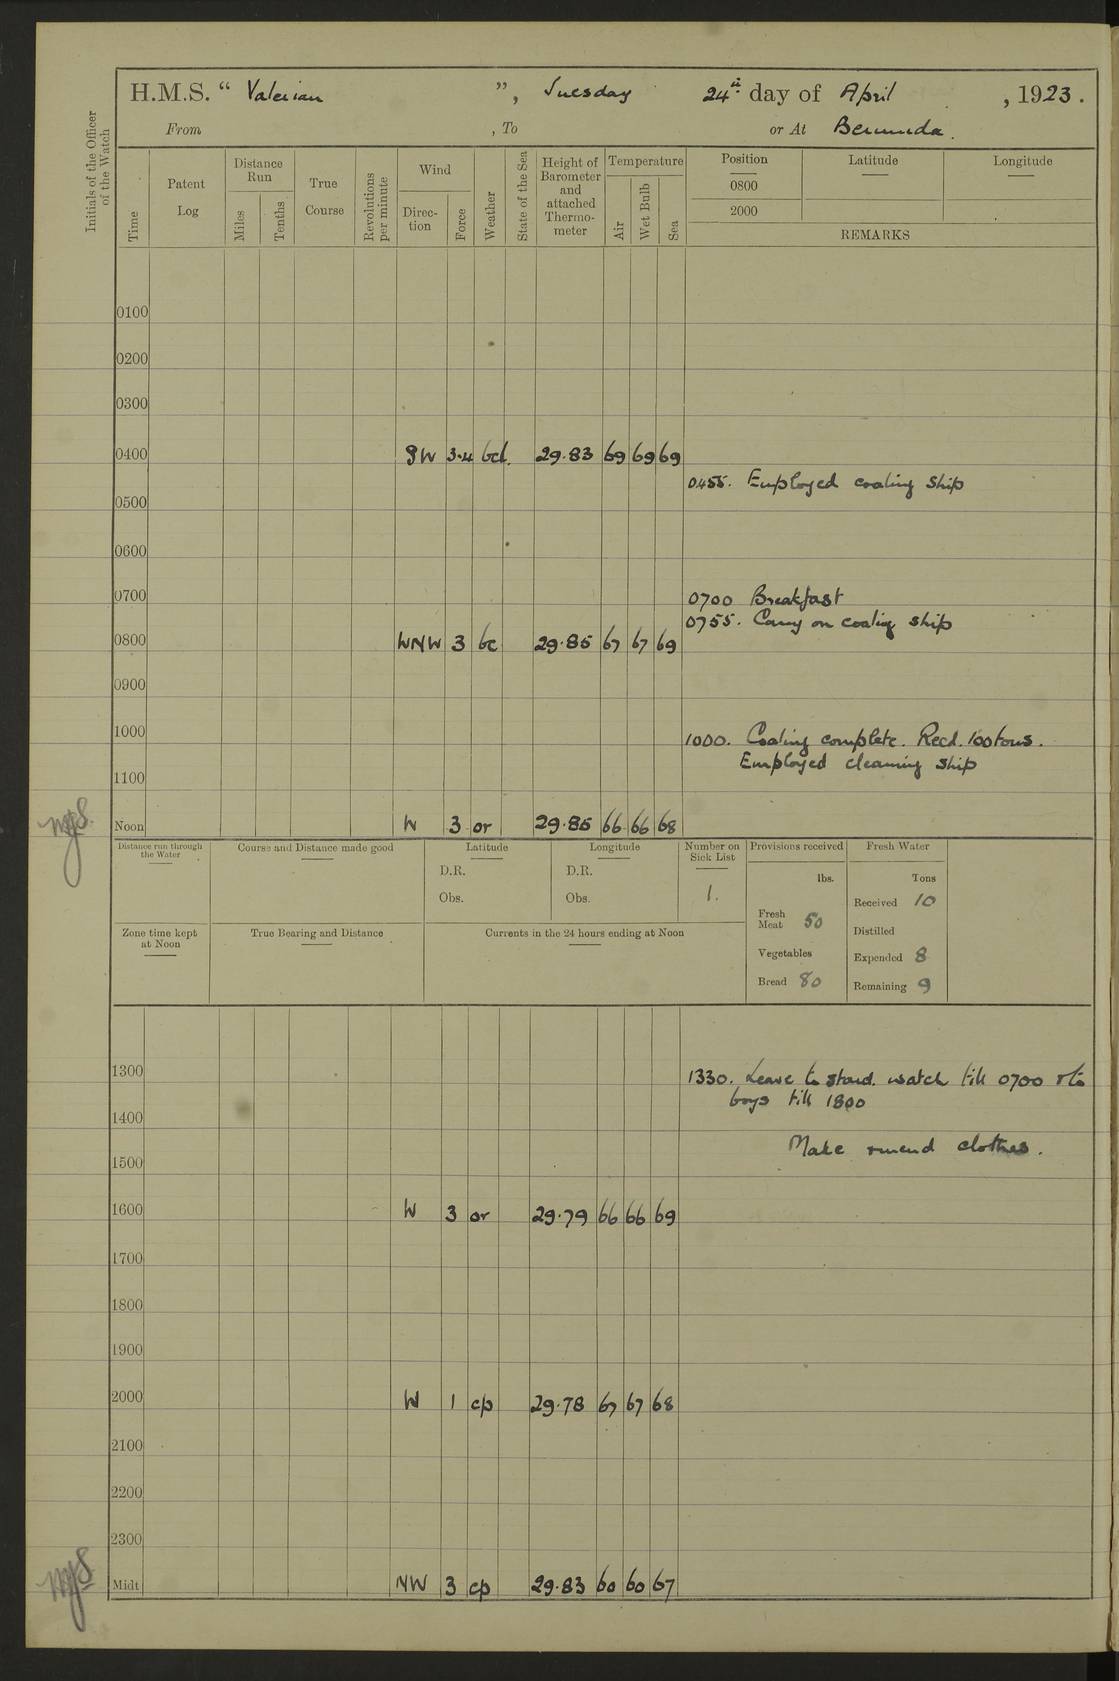 H.M.S. “ Valerian ”, Tuesday 24th day of April , 1923.
From , To or At Bermuda.
Initials of the Officer of the Watch
Time
Patent Log
Distance Run
Miles
Tenths
True Course
Revolutions per minute
Wind
Direc-tion
Force
Weather
State of the Sea
Height of Barometer and attached Thermo-meter
Temperature
Air
Wet Bulb
Sea
Position Latitude Longitude
0800
2000
REMARKS
0100
0200
0300
0400 SW 3.4 bcd. 29.83 69 69 69
0455. Employed coaling ship
0500
0600
0700 0700 Breakfast
0755. Carry on coaling ship
0800 WNW 3 bc 29.85 67 67 69
0900
1000 1000. Coaling complete. Recd. 100 tons.
Employed cleaning ship
1100
Noon W 3 or 29.85 66 66 68
Distance run through the Water
Course and Distance made good
Latitude
D.R.
Obs.
Longitude
D.R.
Obs.
Number on Sick List
1.
Provisions received
lbs.
Fresh Meat 50
Vegetables
Bread 80
Fresh Water
Tons
Received 10
Distilled
Expended 8
Remaining 9
Zone time kept at Noon
True Bearing and Distance
Currents in the 24 hours ending at Noon
1300 1330. Leave to starbd. watch till 0700 & to
boys till 1800
1400
Make & mend clothes.
1500
1600 W 3 or 29.79 66 66 69
1700
1800
1900
2000 W 1 cp 29.78 67 67 68
2100
2200
2300
Midt NW 3 cp 29.83 60 60 67